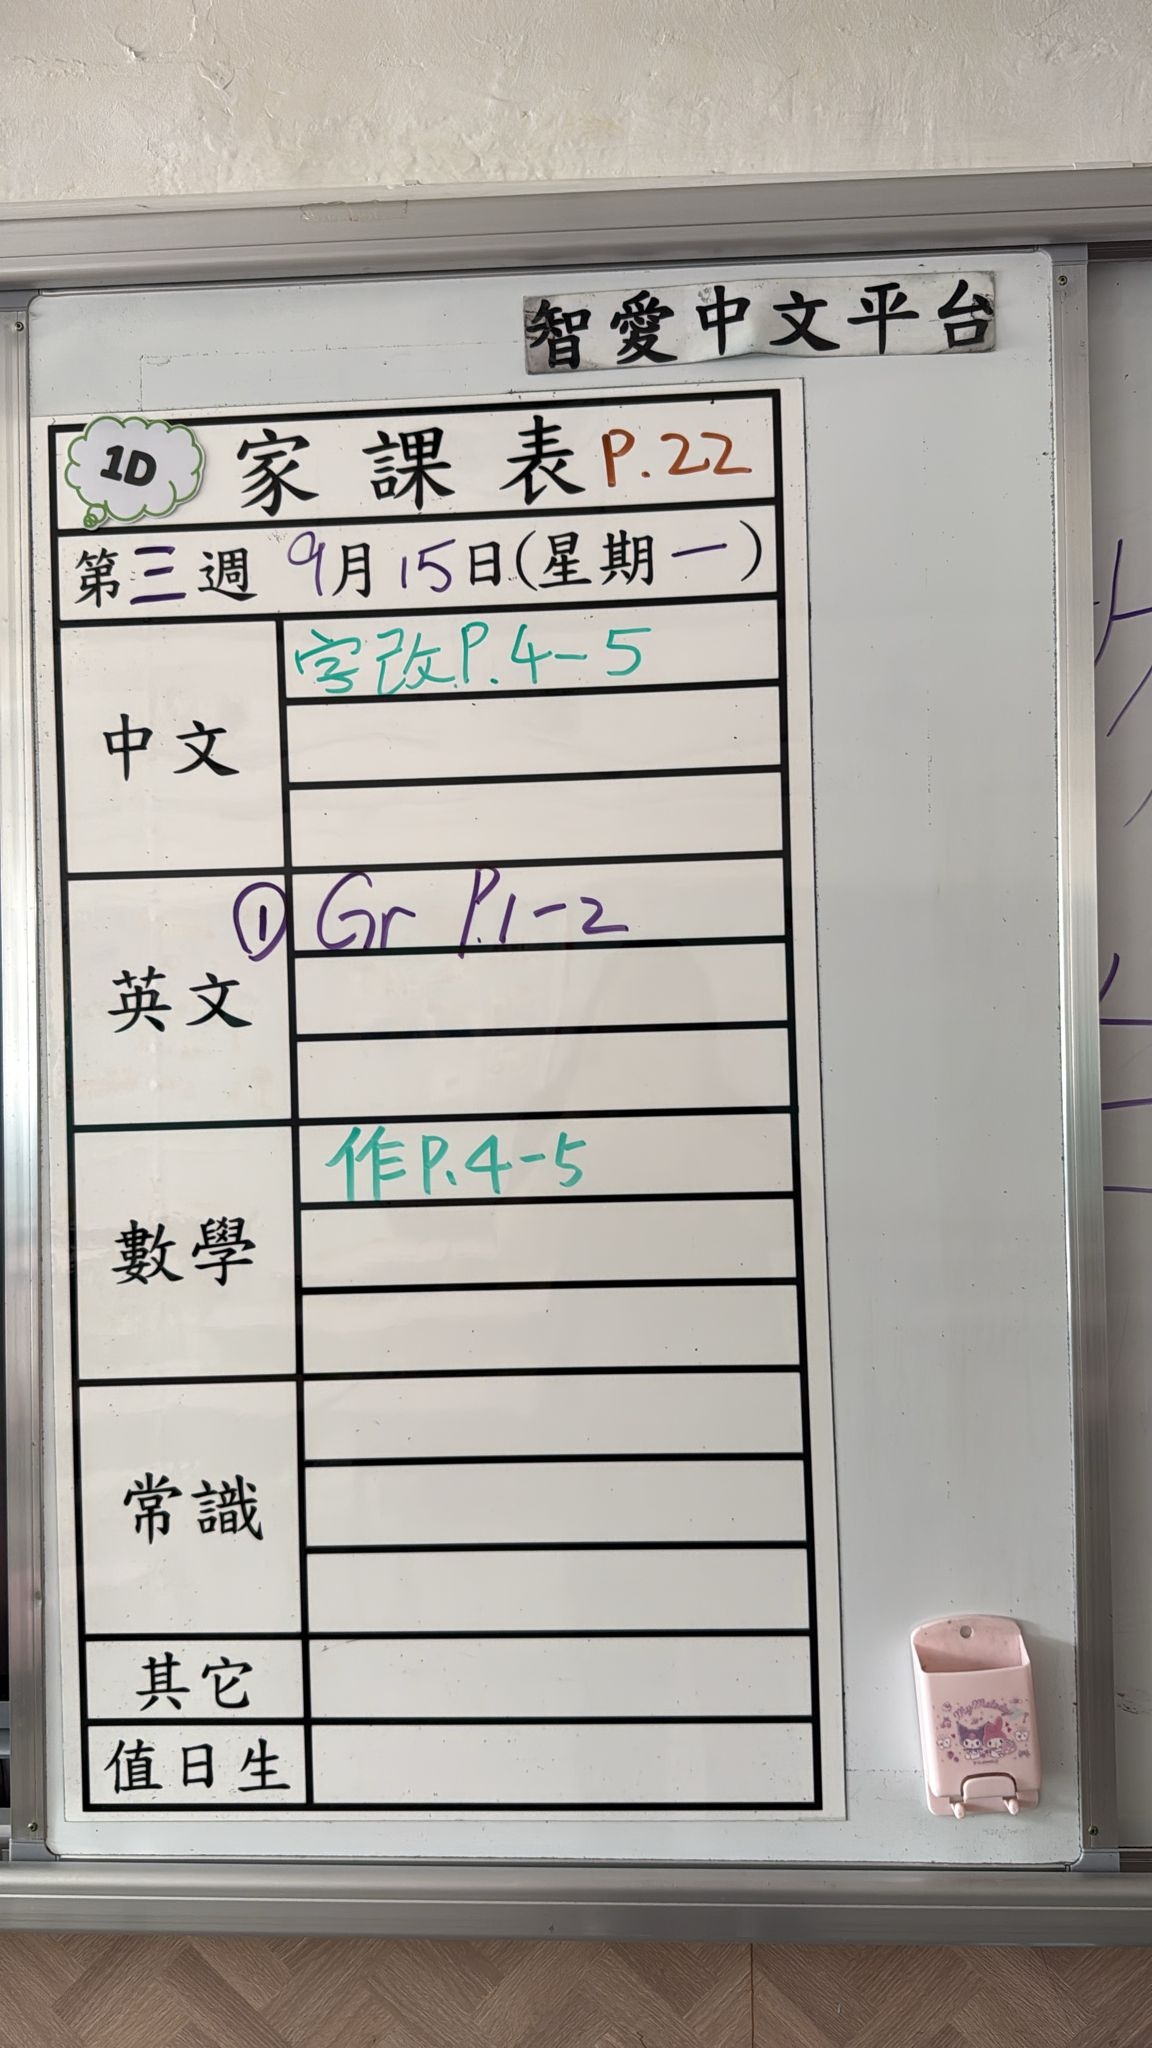 智愛中文平台
1D 家課表 P.22
第三週 9月15日(星期一)
中文
字改P.4-5
英文
① Gr P.1-2
數學
作P.4-5
常識
其它
值日生
My Melody